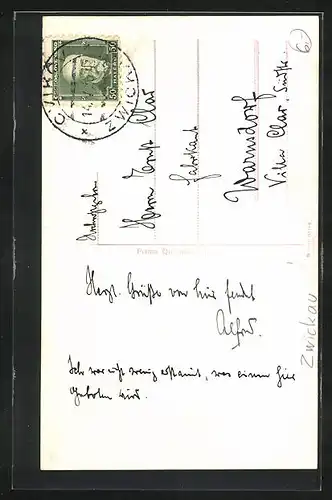 CVIKOV
ZWICKAU
50 50
Herrn Ernst Clar
Fabrikant
Warnsdorf
Villa Clar,
Herzl. Grüße von hier sendet
Alfred.
Ich war nicht wenig erstaunt, was einem hier
geboten wird.
Zwickau